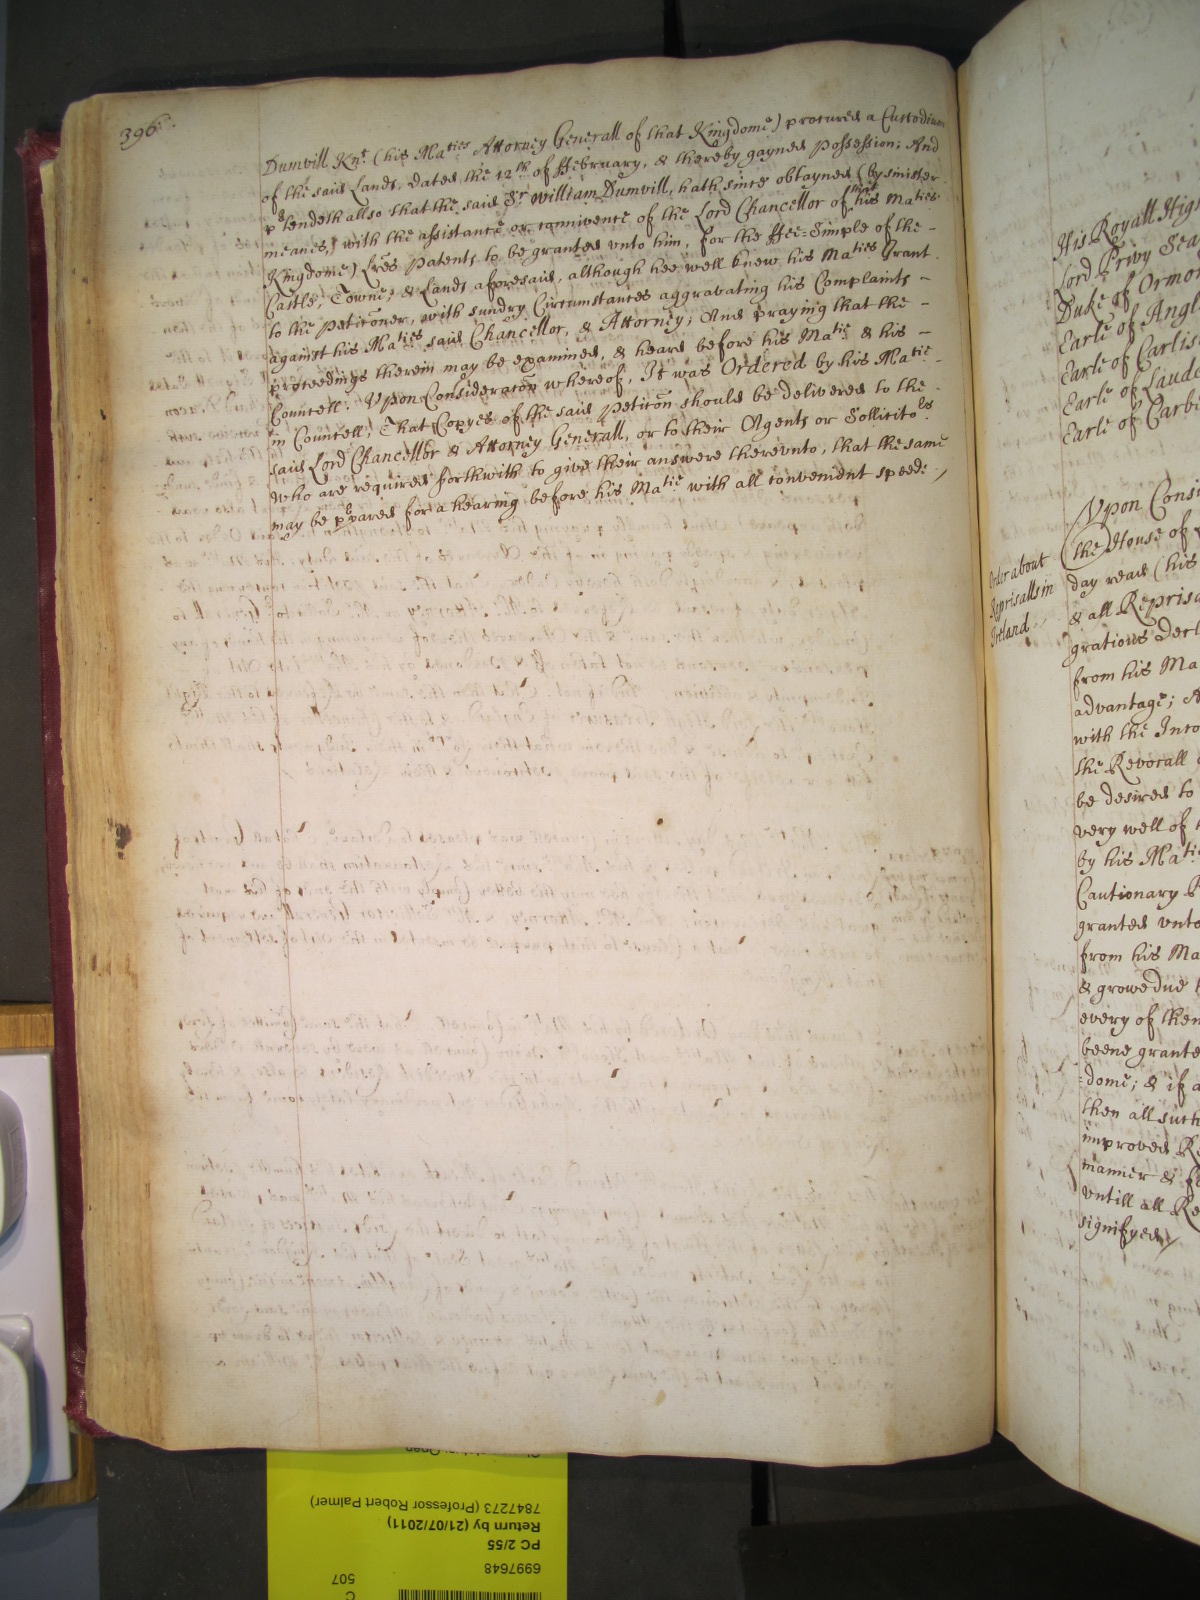 396
Dumvill Knt (his Maties Attorney Generall of that Kingdome) procured a Custodium
of the said Lands, dated the 12th of ffebruary, & thereby gayned possession; And
ptendeth allso that the said Sr William Dumvill, hath since obtayned (by sinister
meanes, with the assistance or connivence of the Lord Chancellor of that his Maties
Kingdome) Lres Patents to be granted vnto him, for the ffee=Simple of the -
Castle, Towne, & Lands aforesaid, although hee well knew his Maties Grant
to the Peticoner, with sundry Circumstances aggravating his Complaints -
against his Maties said Chancellor, & Attorney; And praying that the -
proceedings therein may be examined, & heard before his Matie & his -
Councell. Vpon Consideracon whereof, It was Ordered by his Matie -
in Councell, That Copyes of the said Peticon should be delivered to the -
said Lord Chancellor & Attorney Generall, or to their Agents or Sollicitors
who are required forthwith to give their answere therevnto, that the same
may be ppared for a hearing before his Matie with all convenient speed: /
His Royall High
Lord Privy Sea
Duke of Ormo
Earle of Angl
Earle of Carlis
Earle of Laude
Earle of Carb
Order about
Reprisalls in
Ireland
Vpon Consi
the House of
day read (his
& all Reprisa
gratious Decl
from his Ma
advantage; A
with the Inco
the Revocall
be desired to
very well of
by his Matie
Cautionary R
granted vnto
from his Ma
& growe due
every of them
beene grante
=dome; & if a
then all such
improved Re
manner & fo
vntill all Re
signifyed /
C
507
6997648
PC 2/55
Return by (21/07/2011)
7847273 (Professor Robert Palmer)